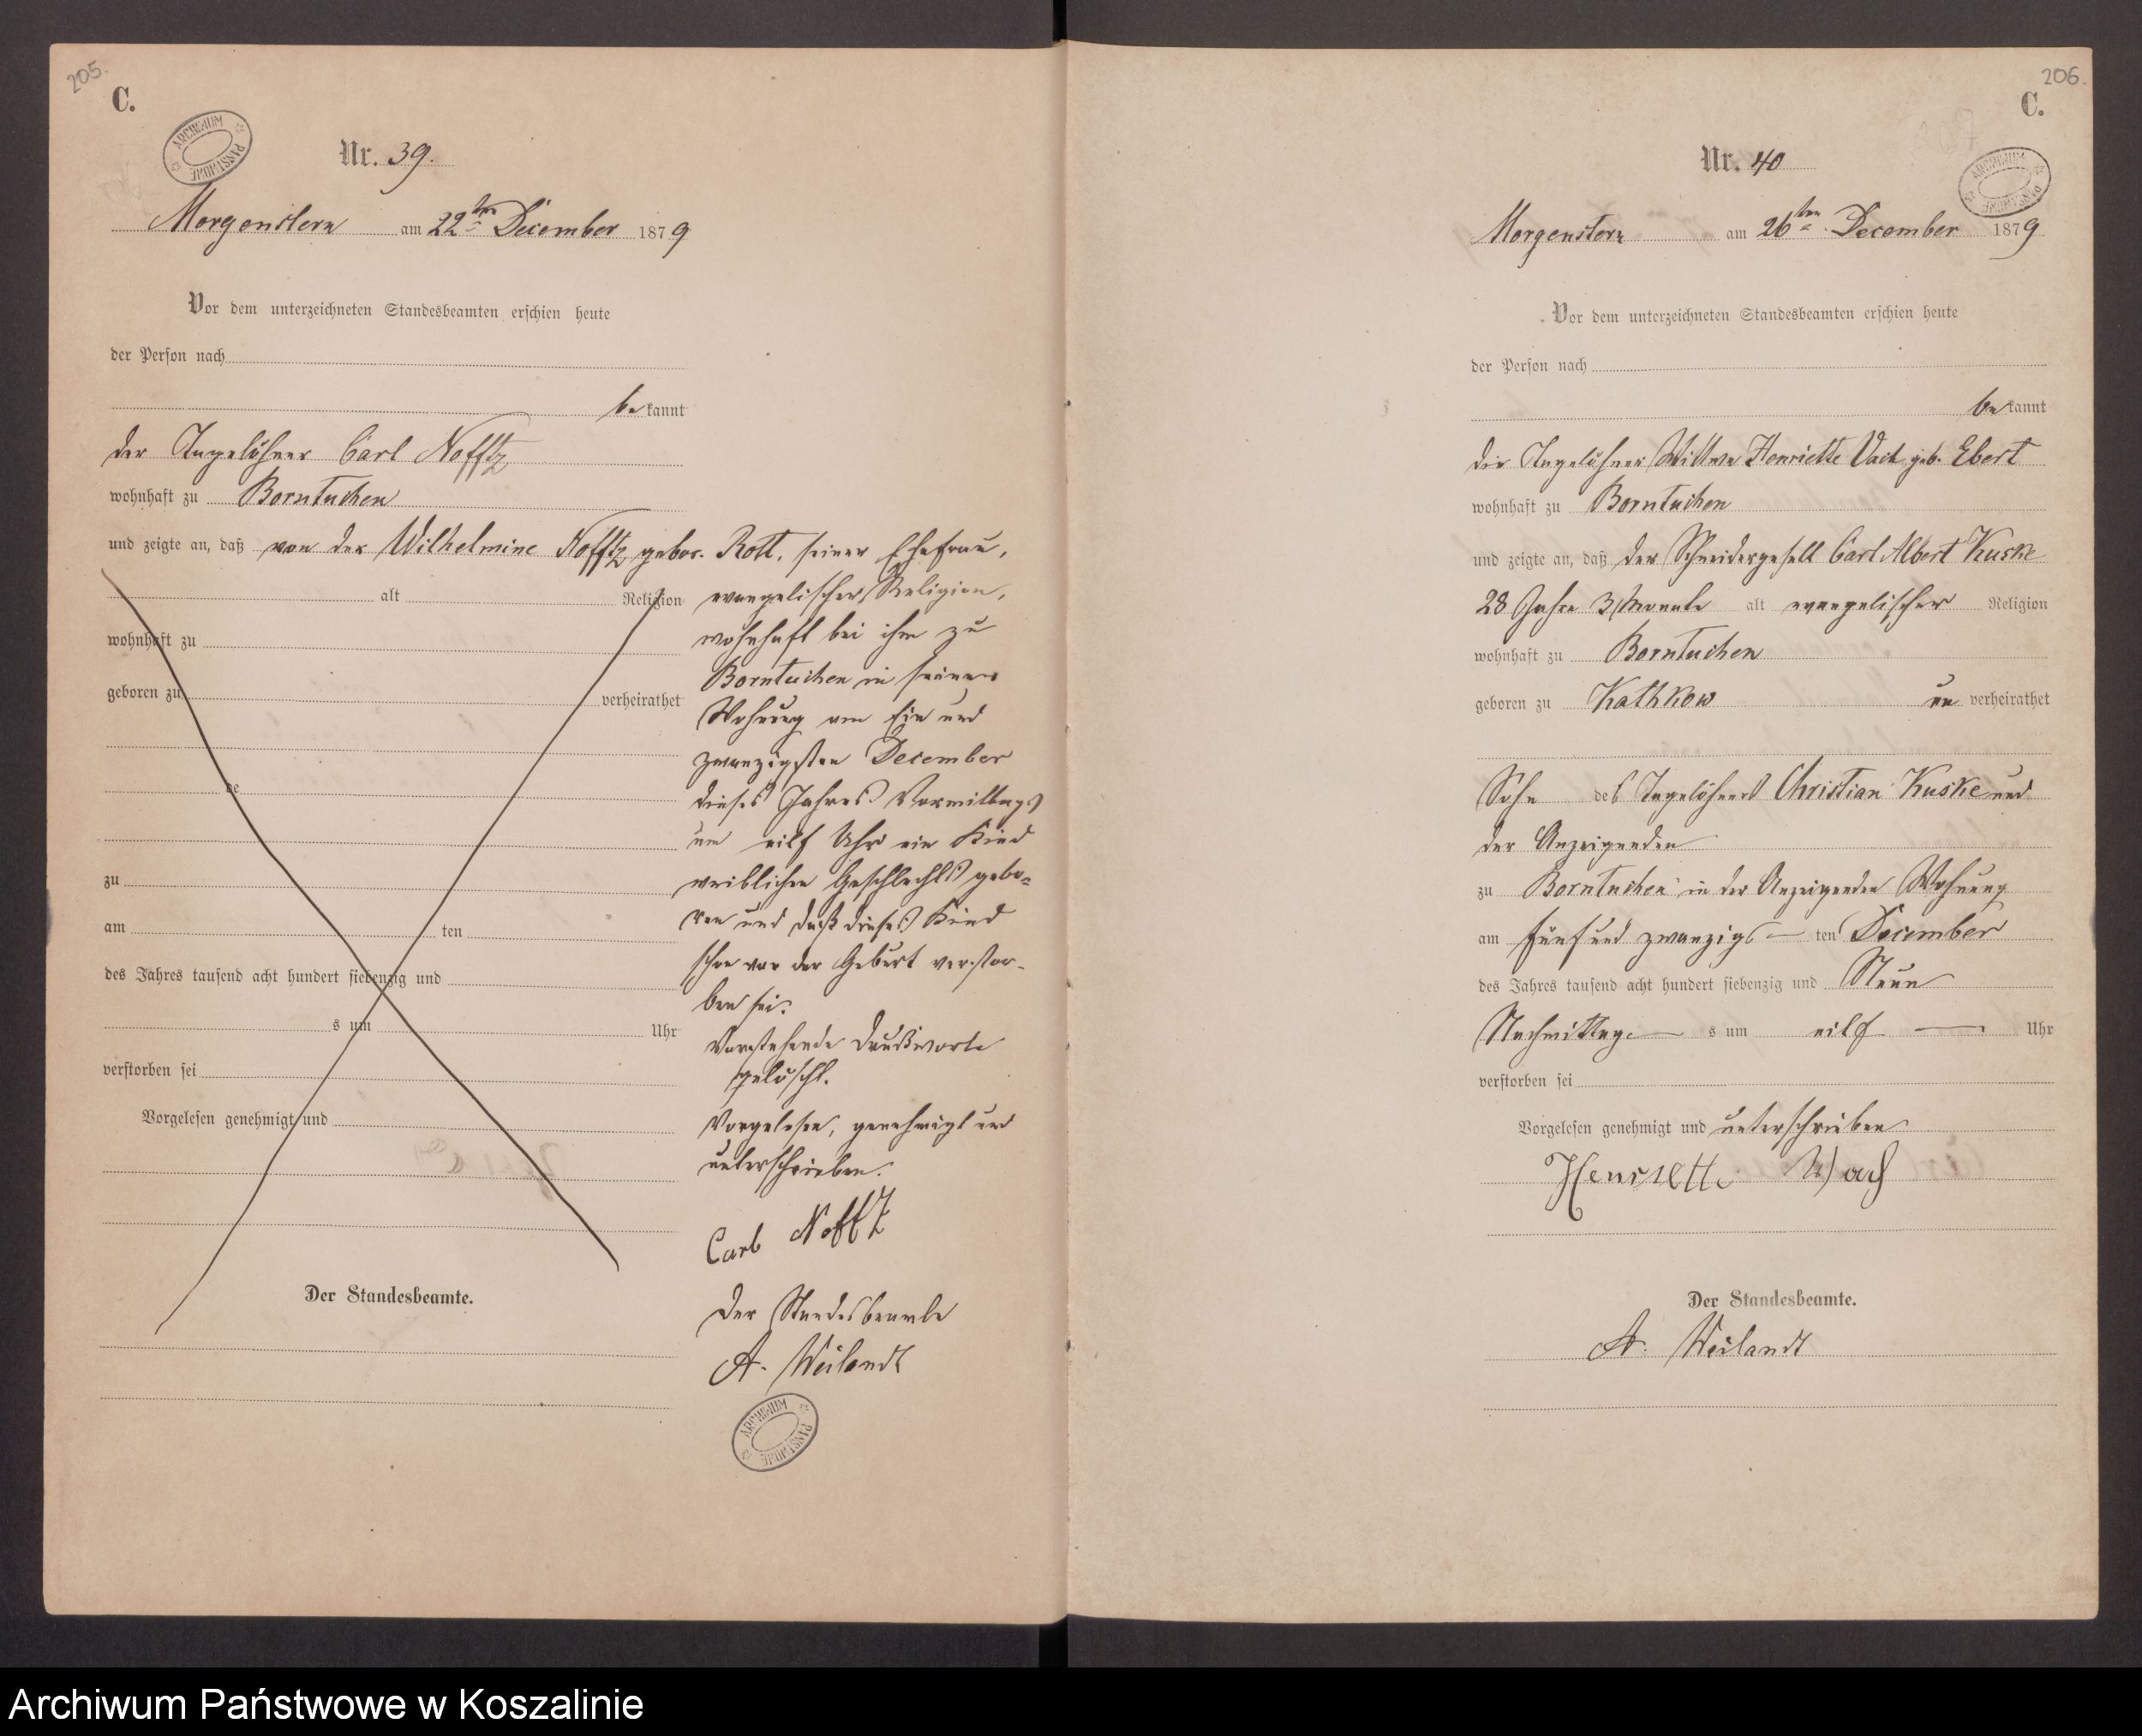 205.
C.
ARCHIWUM PAŃSTWOWE
Nr. 39.
Morgenstern am 22ten December 1879
Vor dem unterzeichneten Standesbeamten erschien heute
der Person nach
bekannt
der Tagelöhner Carl Nofftz
wohnhaft zu Borntuchen
und zeigte an, daß von der Wilhelmine Nofftz gebor. Rott, seiner Ehefrau,
alt Religion
evangelischer Religion,
wohnhaft zu
wohnhaft bei ihm zu
geboren zu verheirathet
Borntuchen in seiner
Wohnung am Ein und
zwanzigsten December
de
dieses Jahres Vormittags
um eilf Uhr ein Kind
zu
weiblichen Geschlechts gebo-
am ten
ren und daß dieses Kind
des Jahres tausend acht hundert siebenzig und
schon vor der Geburt verstor-
ben sei.
s um Uhr
Vorstehende Druckworte
verstorben sei
gelöscht.
Vorgelesen genehmigt und
Vorgelesen, genehmigt und
unterschrieben.
Carl Nofftz
Der Standesbeamte.
Der Standesbeamte
A. Weilandt
ARCHIWUM PAŃSTWOWE
206.
C.
ARCHIWUM PAŃSTWOWE
Nr. 40
Morgenstern am 26ten December 1879
Vor dem unterzeichneten Standesbeamten erschien heute
der Person nach
bekannt
die Tagelöhner Wittwe Henriette Vach geb. Ebert
wohnhaft zu Borntuchen
und zeigte an, daß der Schneidergesell Carl Albert Kuske
28 Jahre 3 Monate alt evangelischer Religion
wohnhaft zu Borntuchen
geboren zu Kathkow unverheirathet
Sohn des Tagelöhners Christian Kuske und
der Anzeigenden
zu Borntuchen in der Anzeigenden Wohnung
am fünf und zwanzigsten December
des Jahres tausend acht hundert siebenzig und Neun
Nachmittags um eilf Uhr
verstorben sei
Vorgelesen genehmigt und unterschrieben
Henriette Wach
Der Standesbeamte.
A. Weilandt
Archiwum Państwowe w Koszalinie